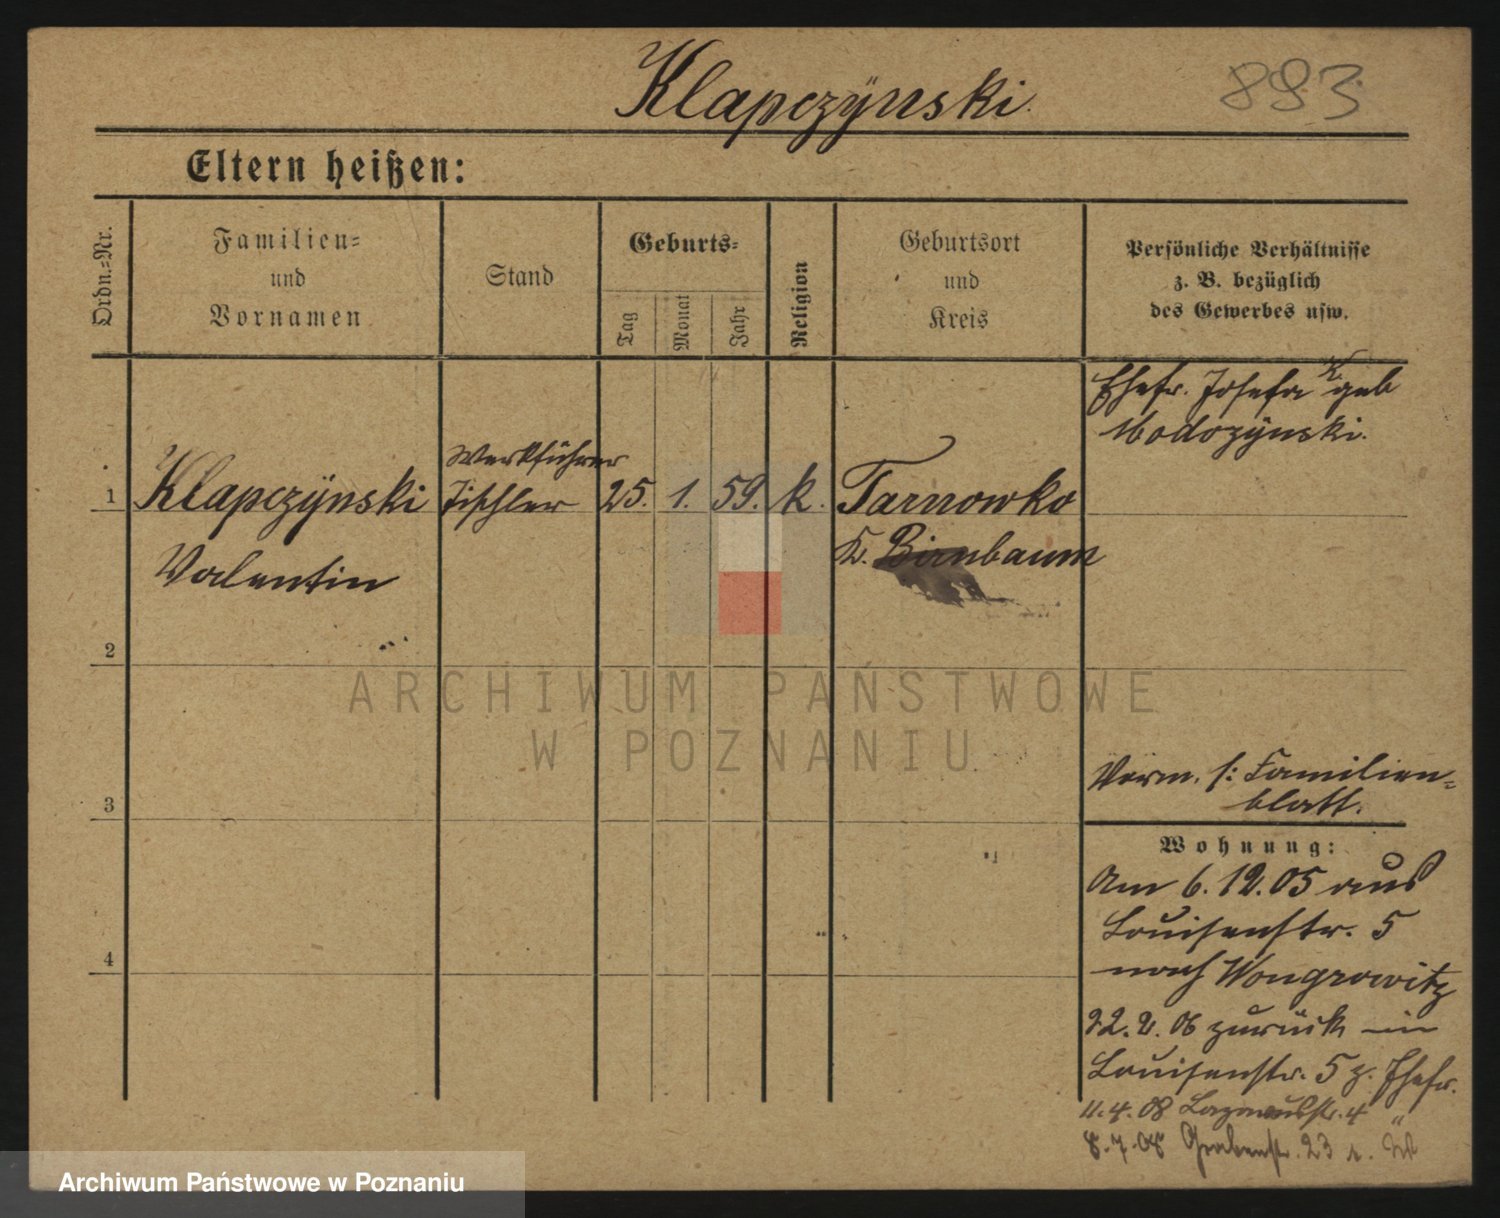 Klapczÿnski.
883
Eltern heißen:
Ordn.=Nr.
Familien=
und
Vornamen
Stand
Geburts=
Tag
Monat
Jahr
Religion
Geburtsort
und
Kreis
Persönliche Verhältnisse
z. B. bezüglich
des Gewerbes usw.
Ehefr. Josefa K. geb
1
Klapczÿnski
Valentin
Werkführer
Tischler
25. 1. 59. k.
Tarnowko
Kr. Birnbaum
2
3
4
Verm. s: Familien=
blatt.
Wohnung:
Am 6.12.05 aus
Louisenstr. 5
nach Wongrowitz
22.2.06 zurück in
Louisenstr. 5 z. Ehefr.
11.4.08 Lazarusstr. 4 "
8.7.08 Grabenstr. 23
ARCHIWUM PAŃSTWOWE
W POZNANIU
Archiwum Państwowe w Poznaniu